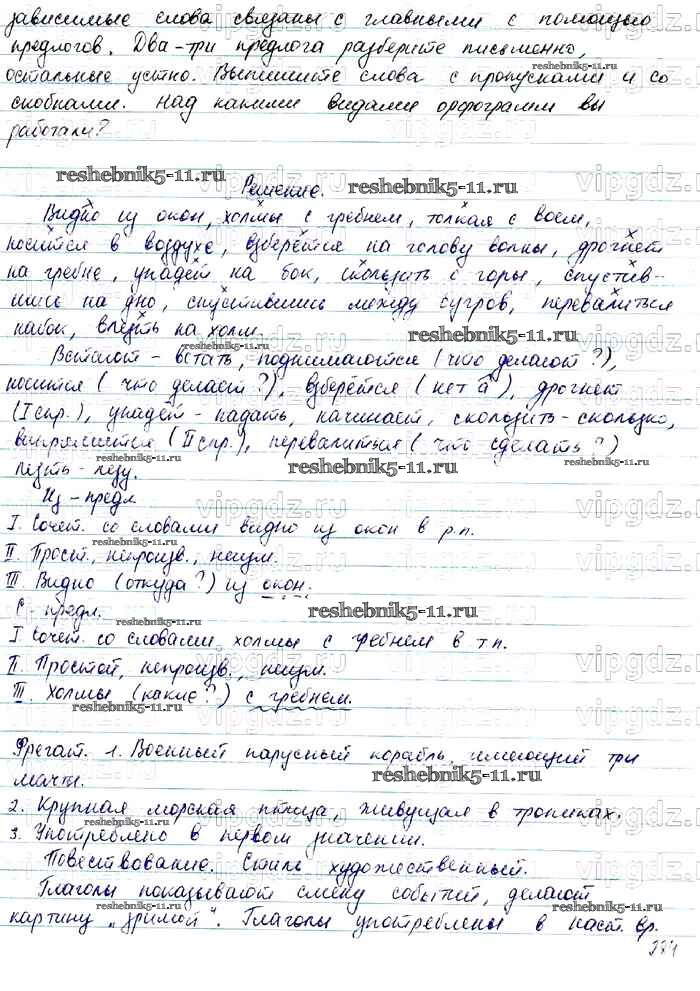 зависимые слова связаны с главными с помощью
предлогов. Два-три предлога разберите письменно,
reshebnik5-11.ru
остальные устно. Выпишите слова с пропусками и со
скобками. Над какими видами орфограмм вы
работали?
reshebnik5-11.ru
vipgdz.ru
Решение.
reshebnik5-11.ru
vipgdz.ru
Видно из окон, холмы с гребнем, толкая с воем,
носится в воздухе, взберётся на голову волны, дрогнет
на гребне, упадёт на бок, скользить с горы, спустив-
шись на дно, спустившись между бугров, перевалиться
набок, влезть на холм.
reshebnik5-11.ru
vipgdz.ru
Встают - встать, поднимаются (что делают?),
носится (что делает?), взберётся (нет а), дрогнет
(I спр.), упадёт - падать, начинает, скользить - скользко,
выпрямится (II спр.), перевалиться (что сделать?)
reshebnik5-11.ru
reshebnik5-11.ru
reshebnik5-11.ru
лезть - лезу.
Из - предл.
vipgdz.ru
vipgdz.ru
I. Сочет. со словами видно из окон в р.п.
reshebnik5-11.ru
II. Прост., непроизв., неизм.
vipgdz.ru
vipgdz.ru
III. Видно (откуда?) из окон.
С - предл.
reshebnik5-11.ru
reshebnik5-11.ru
I Сочет. со словами холмы с гребнем в т.п.
II. Простой, непроизв., неизм.
vipgdz.ru
vipgdz.ru
III. Холмы (какие?) с гребнем.
reshebnik5-11.ru
reshebnik5-11.ru
Фрегат. 1. Военный парусный корабль, имеющий три
мачты.
reshebnik5-11.ru
2. Крупная морская птица, живущая в тропиках.
3. Употреблено в первом значении.
Повествование. Стиль художественный.
Глаголы показывают смену событий, делают
reshebnik5-11.ru
reshebnik5-11.ru
картину „зримой“. Глаголы употреблены в наст. вр.